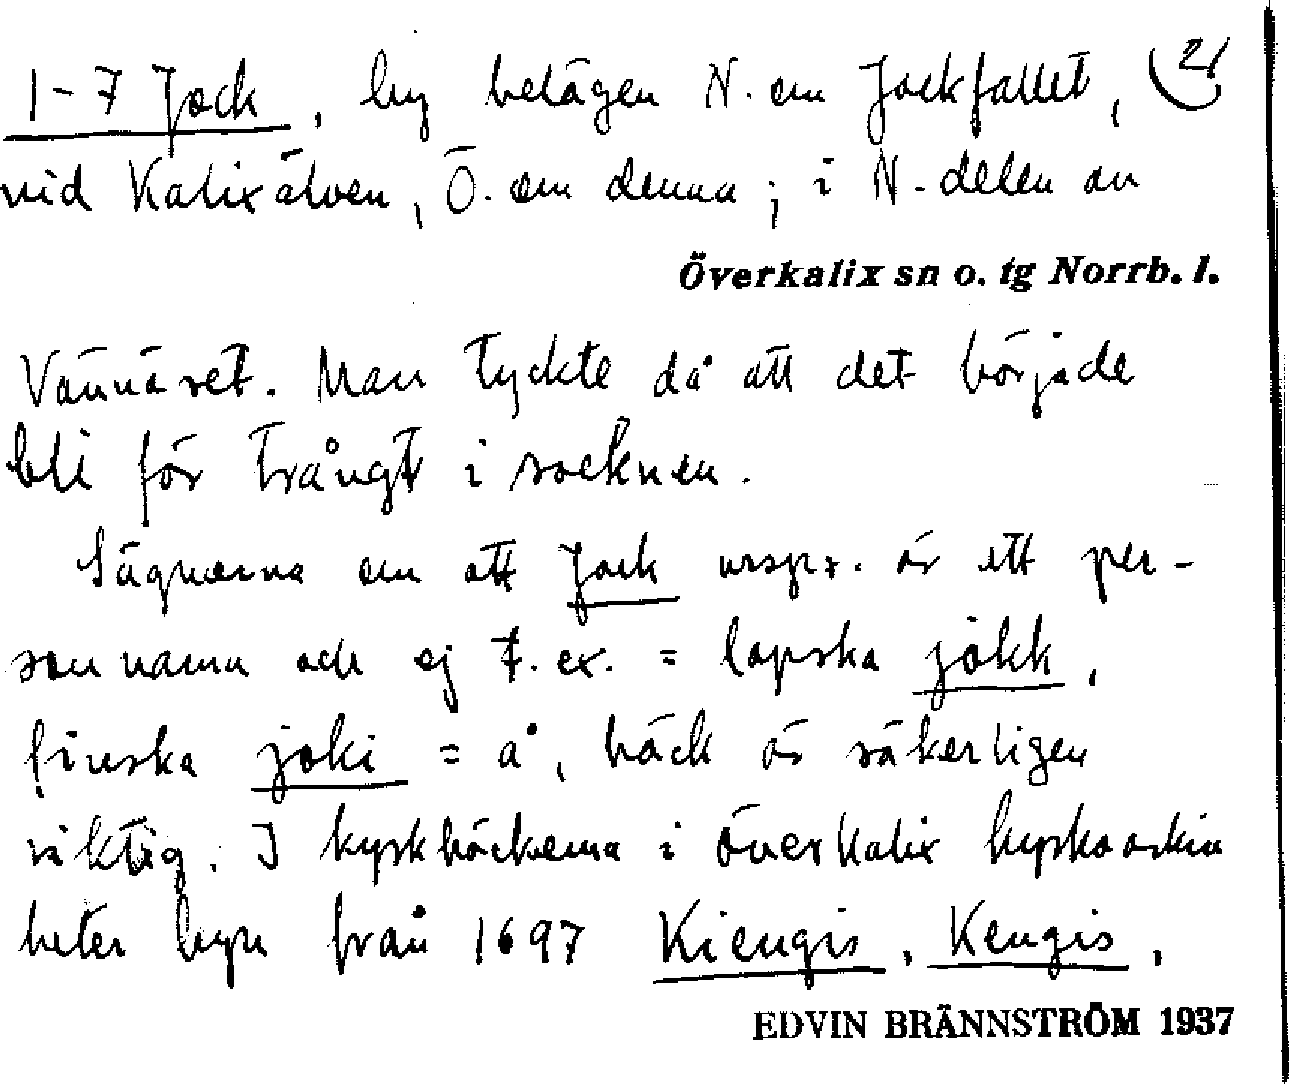 1-7 Jock, by belägen N. om Jockfallet, 2/
vid Kalixälven, Ö. om denna; i N-delen av
Överkalix sn o. tg Norrb. l.
Vännäset. Man tyckte då att det började
bli för trångt i socknen.
Sägnerna om att Jock urspr. är ett per-
sonnamn och ej t. ex. = lapska jokk,
finska joki = å, bäck är säkerligen
riktig. I kyrkböckerna i Överkalix kyrkoarkiv
heter byn från 1697 Kiengis, Kengis,
EDVIN BRÄNNSTRÖM 1937